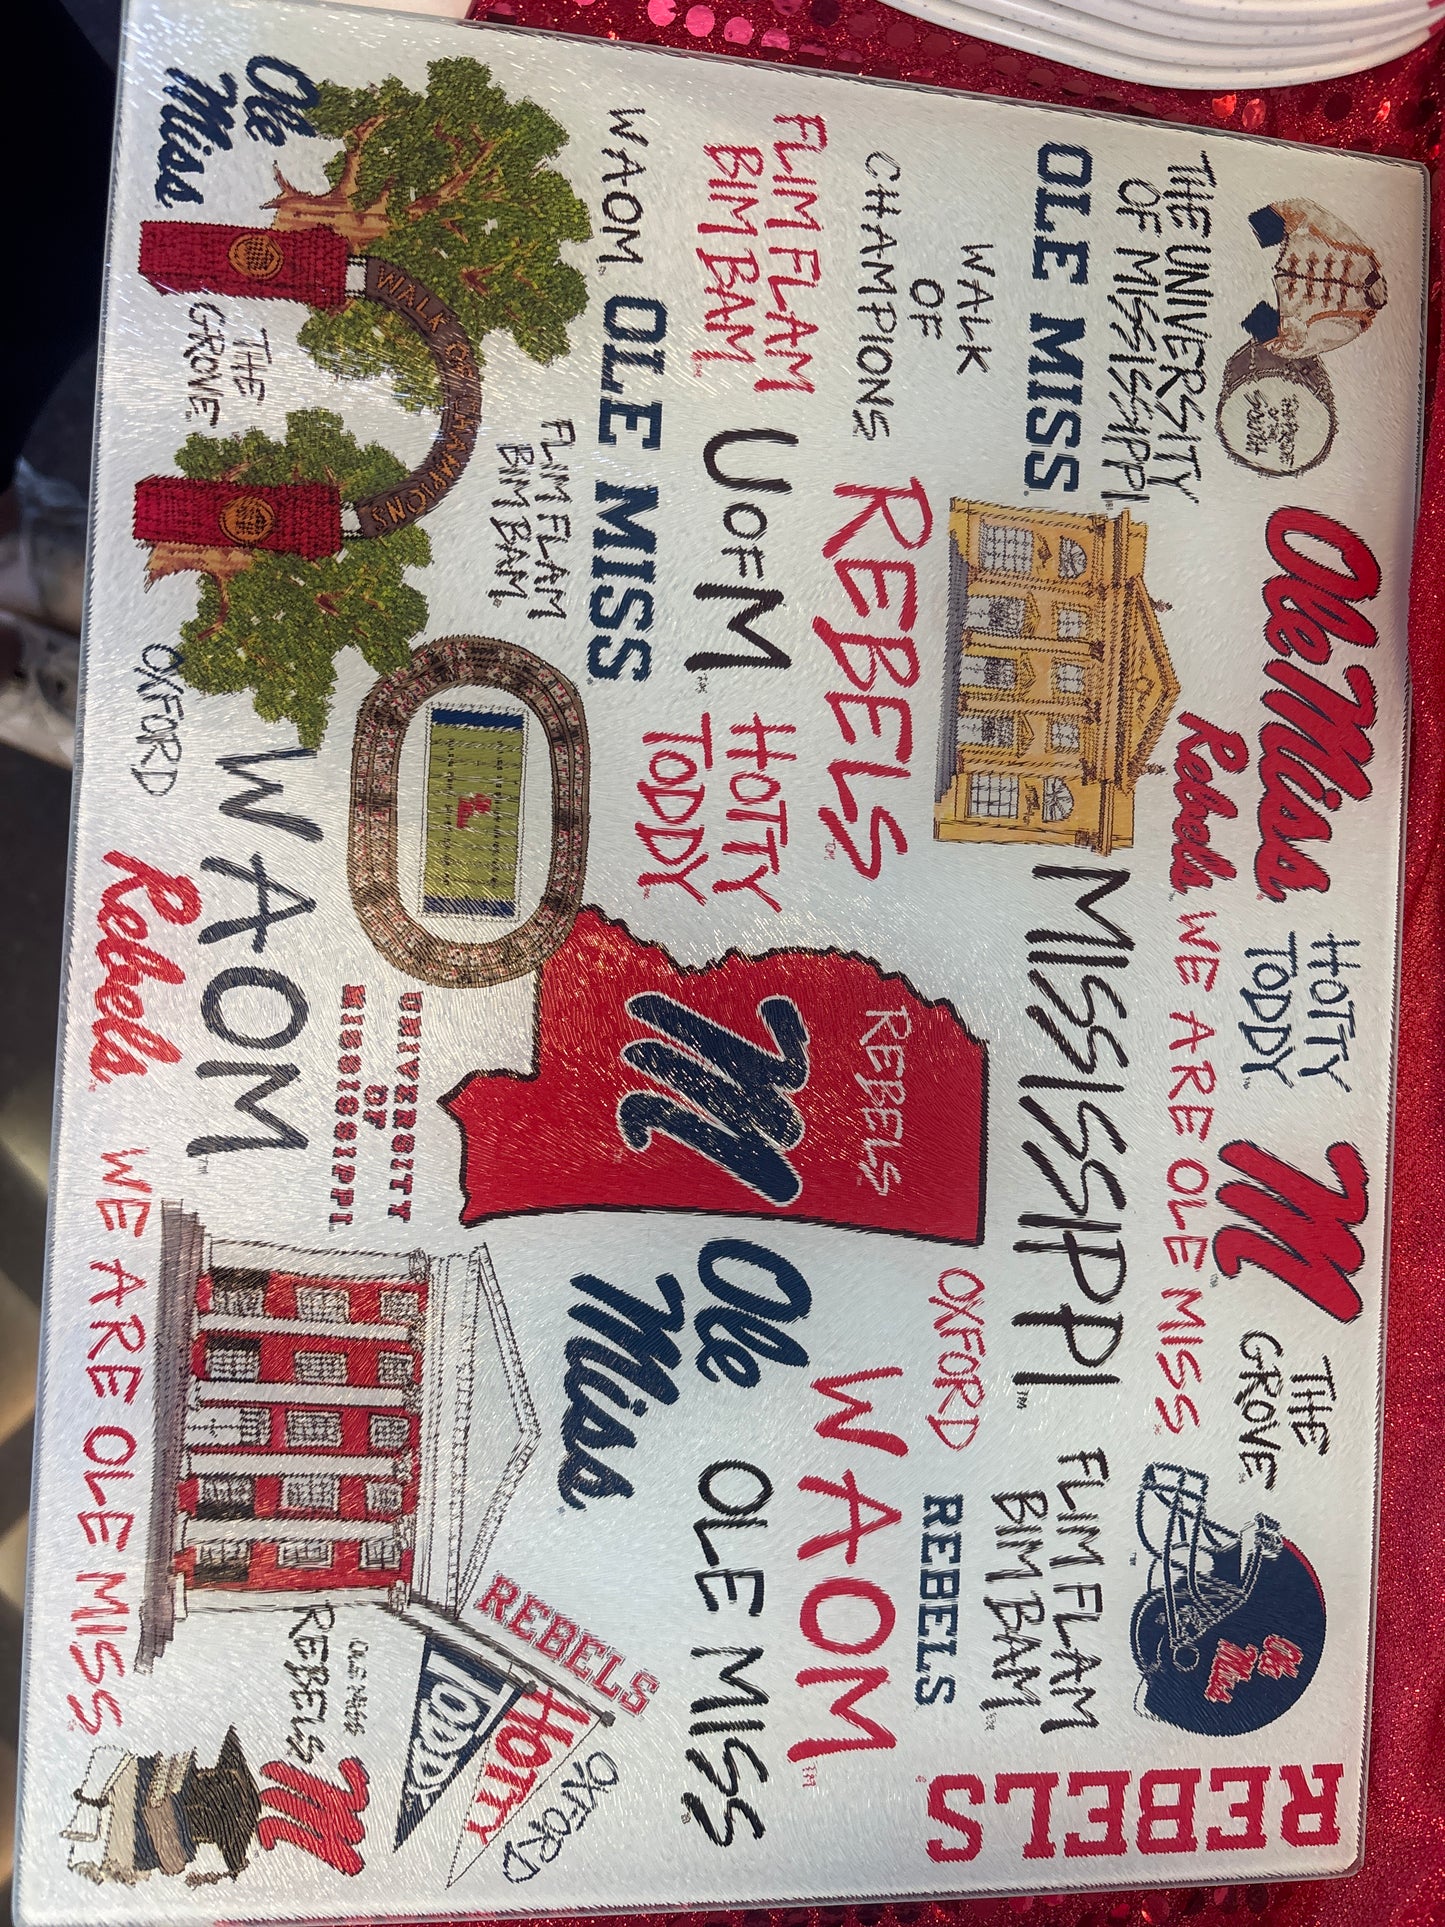 THE UNIVERSITY
OF MISSISSIPPI
OLE MISS
WALK
OF
CHAMPIONS
FLIM FLAM
BIM BAM
WAOM
OLE MISS
Ole
Miss
WALK OF CHAMPIONS
THE
GROVE
FLIM FLAM
BIM BAM
UOFM
REBELS
Ole Miss
Rebels
HOTTY
TODDY
WE ARE OLE MISS
MISSISSIPPI
HOTTY
TODDY
OXFORD
WAOM
Rebels
UNIVERSITY
OF
MISSISSIPPI
REBELS
M
M
THE
GROVE
OXFORD
Ole
Miss
WE ARE OLE MISS
FLIM FLAM
BIM BAM
REBELS
WAOM
OLE MISS
Ole
Miss
REBELS
REBELS
HOTTY
TODDY
OXFORD
OLE MISS
REBELS
M